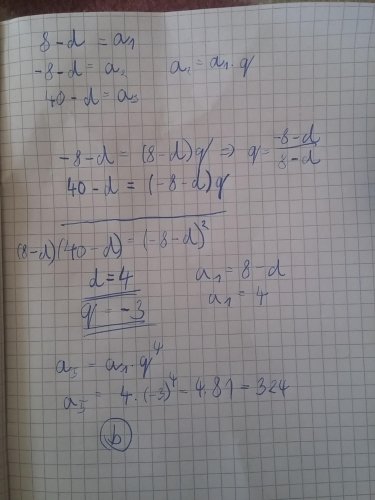 8 - d = a₁
-8 - d = a₂ a₂ = a₁ · q
40 - d = a₃
-8 - d = (8 - d) q ⇒ q = (-8 - d)/(8 - d)
40 - d = (-8 - d) q
(8 - d)(40 - d) = (-8 - d)²
d = 4 a₁ = 8 - d
q = -3 a₁ = 4
a₅ = a₁ · q⁴
a₅ = 4 · (-3)⁴ = 4 · 81 = 324
b